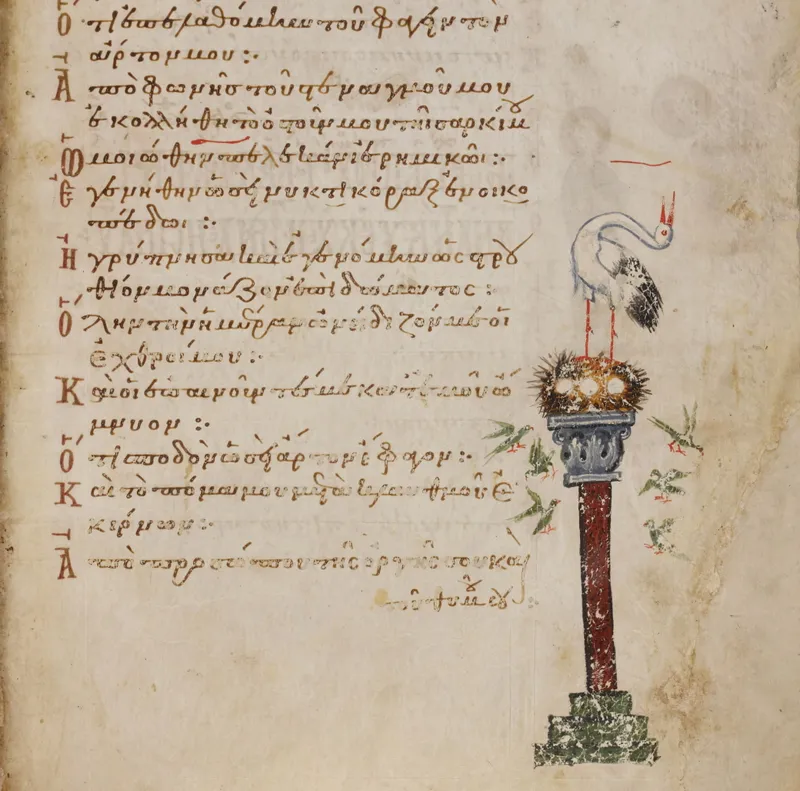 Ὅτι ἐπελαθόμην τοῦ φαγεῖν τὸν
ἄρτον μου :
Ἀπὸ φωνῆς τοῦ στεναγμοῦ μου
ἐκολλήθη τὸ ὀστοῦν μου τῆι σαρκί μου
Ὡμοιώθην πελεκᾶνι ἐρημικῶι :
Ἐγενήθην ὡσεὶ νυκτικόραξ ἐν οικο
πέδωι :
Ἠγρύπνησα καὶ ἐγενόμην ὡς στρου
θίον μονάζον ἐπὶ δώματος :
Ὅλην τὴν ἡμέραν ὠνείδιζόν με οἱ
ἐχθροί μου :
Καὶ οἱ ἐπαινοῦντές με κατ' ἐμοῦ ὤ
μνυον :
Ὅτι σποδὸν ὡσεὶ ἄρτον ἔφαγον :
Καὶ τὸ πόμα μου μετὰ κλαυθμοῦ ἐ
κέρνων :
Ἀπὸ προσώπου τῆς ὀργῆς σου καὶ
τοῦ θυμοῦ σου :